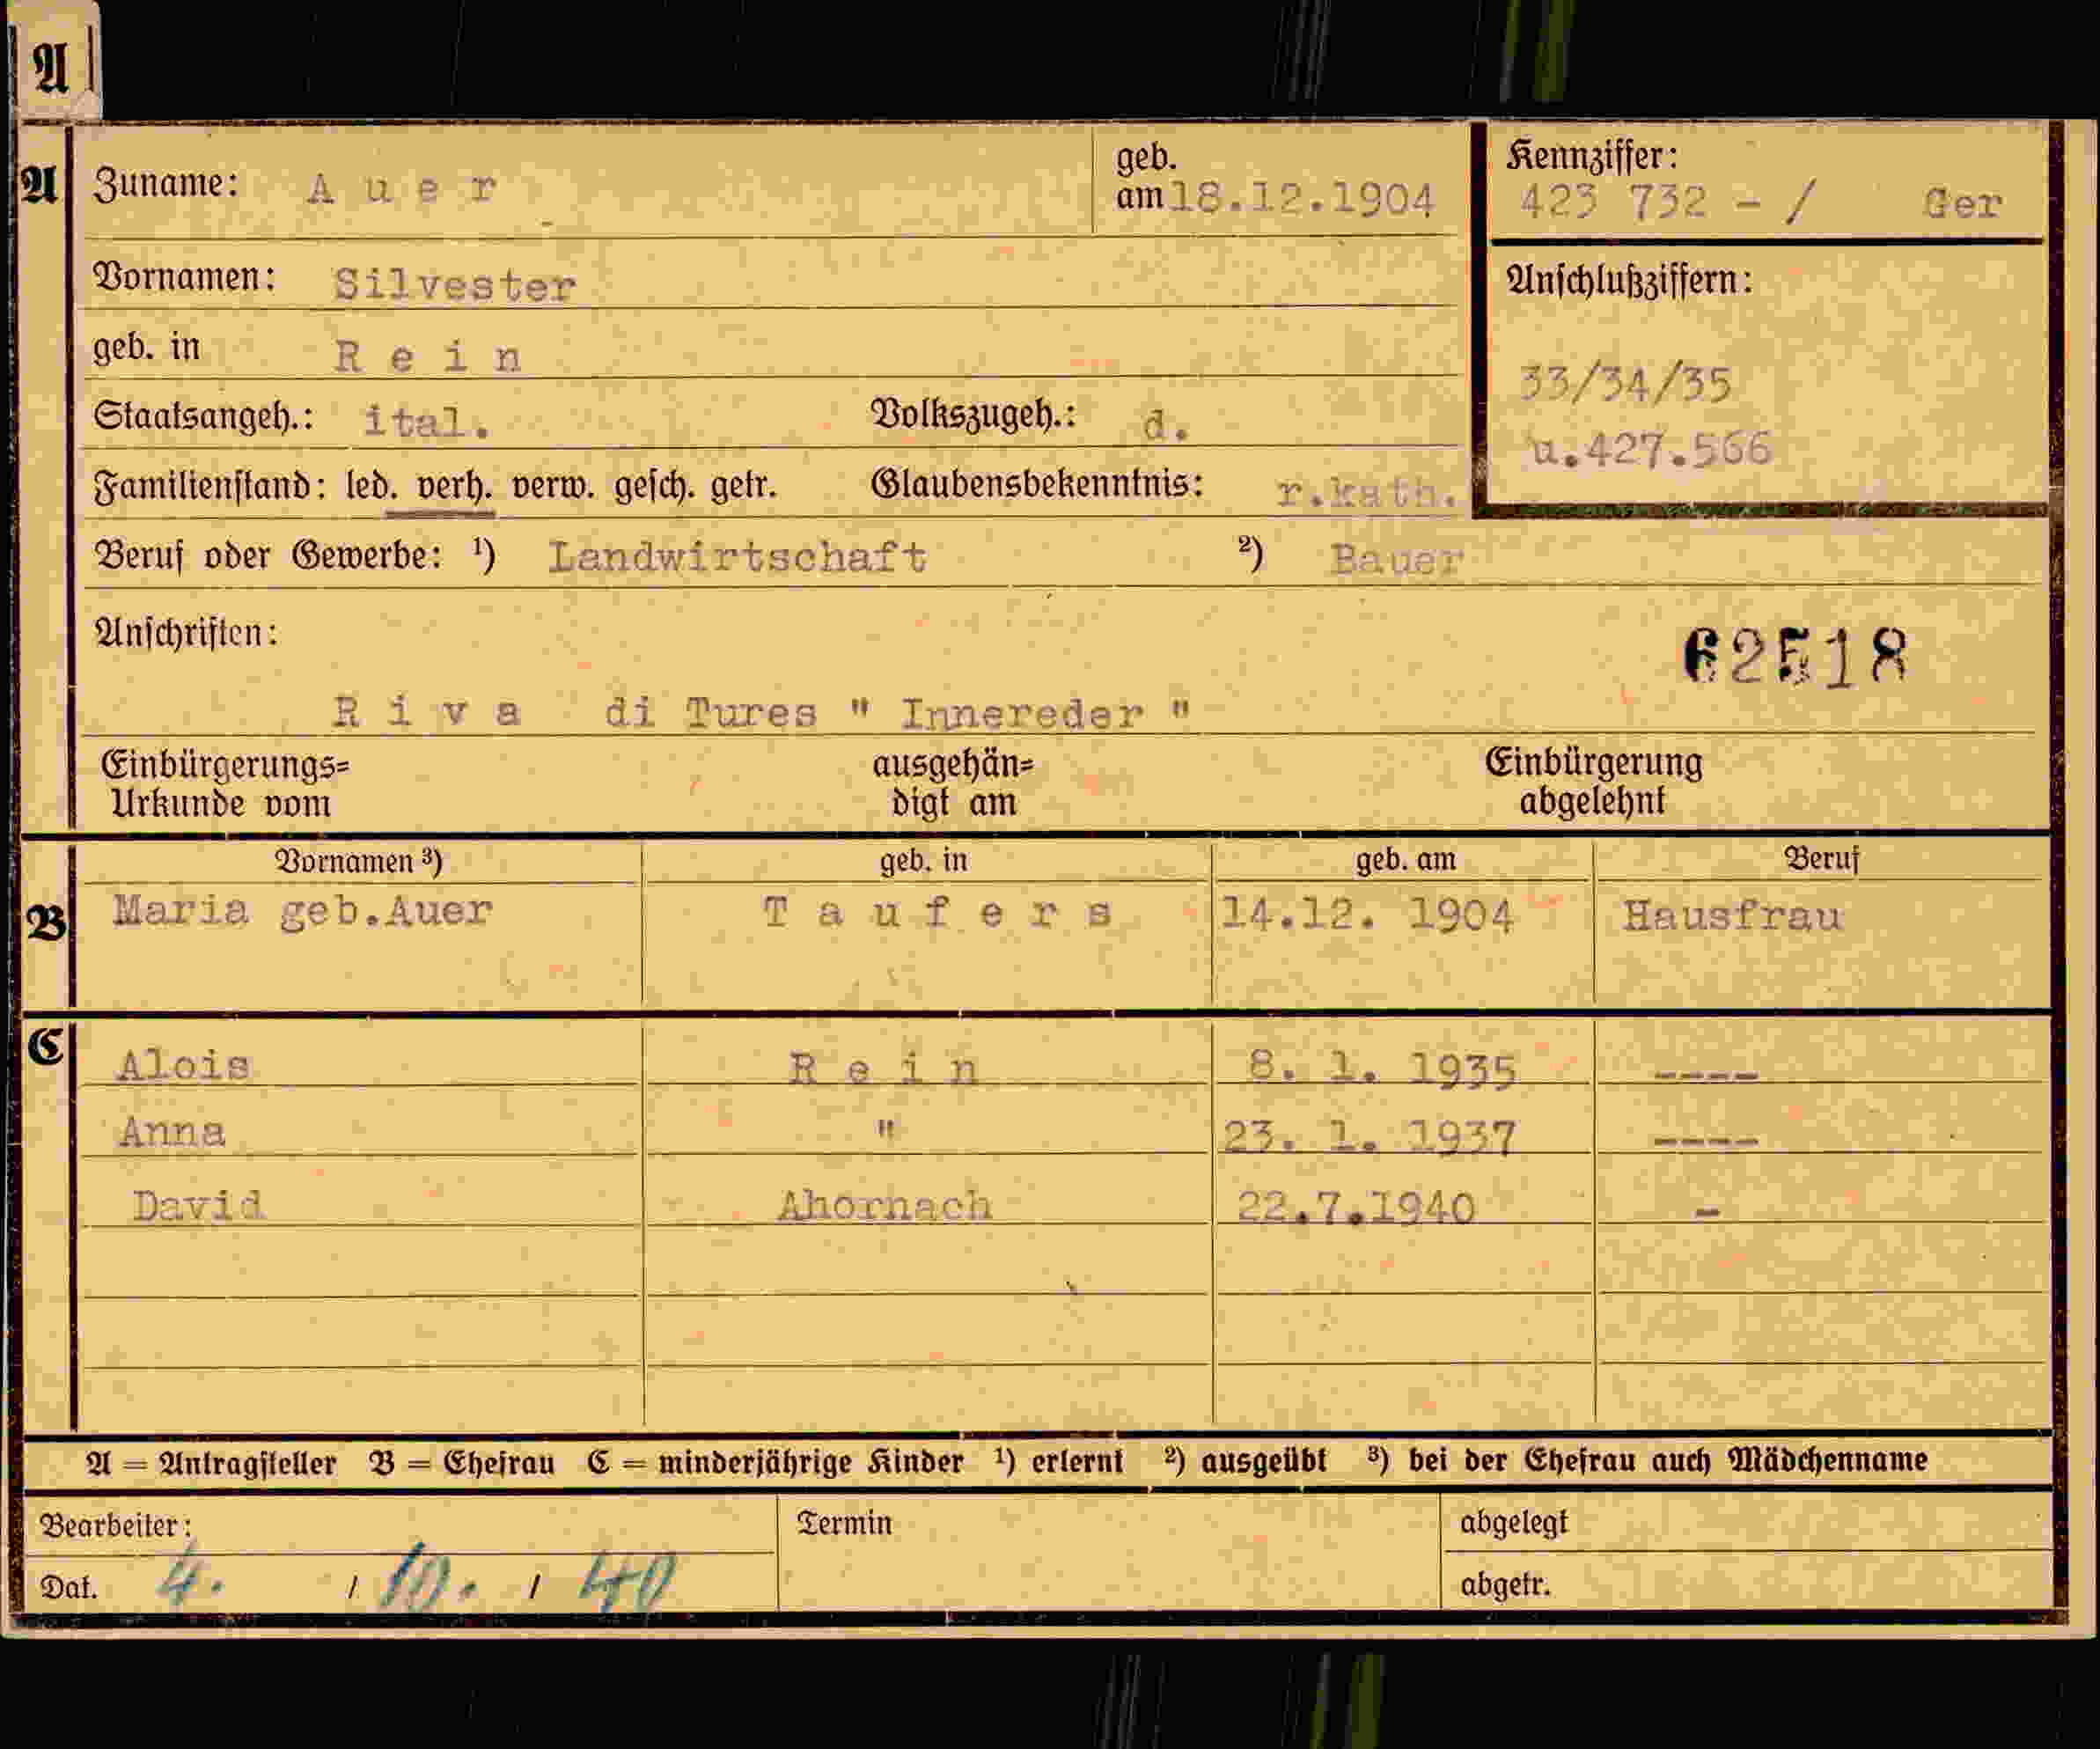 A
A Zuname: Auer geb. am 18.12.1904
Kennziffer:
423 732 - / Ger
Vornamen: Silvester
Anschlußziffern:
geb. in Rein
33/34/35
Staatsangeh.: ital. Volkszugeh.: d.
u.427.566
Familienstand: led. verh. verw. gesch. getr. Glaubensbekenntnis: r.kath.
Beruf oder Gewerbe: ¹) Landwirtschaft ²) Bauer
Anschriften:
62518
Riva di Tures " Innereder "
Einbürgerungs= ausgehän= Einbürgerung
Urkunde vom digt am abgelehnt
Vornamen ³) geb. in geb. am Beruf
B Maria geb.Auer Taufers 14.12. 1904 Hausfrau
C Alois Rein 8. 1. 1935 ----
Anna " 23. 1. 1937 ----
David Ahornach 22.7.1940 -
A = Antragsteller B = Ehefrau C = minderjährige Kinder ¹) erlernt ²) ausgeübt ³) bei der Ehefrau auch Mädchenname
Bearbeiter: Termin abgelegt
Dat. 4. / 10. / 40 abgetr.